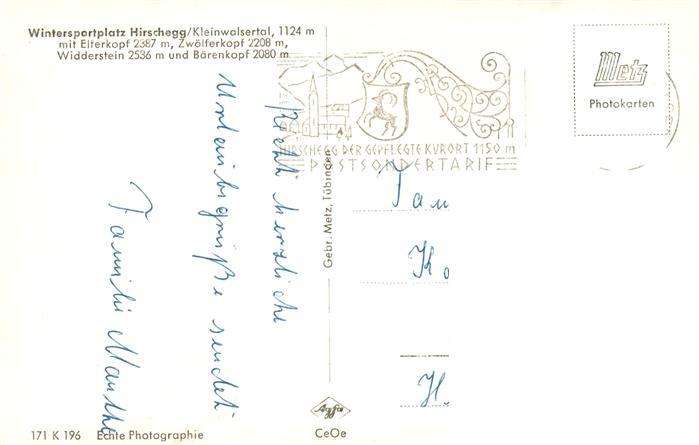 Wintersportplatz Hirschegg/Kleinwalsertal, 1124 m
mit Elferkopf 2387 m, Zwölferkopf 2208 m,
Widderstein 2536 m und Bärenkopf 2080 m
HIRSCHEGG DER GEPFLEGTE KURORT 1150 m
POSTSONDERTARIF
Metz
Photokarten
Recht herzliche
Urlaubsgrüße sendet
Familie
Gebr. Metz, Tübingen
Fam
K.
H.
171 K 196 Echte Photographie
Agfa
CeOe